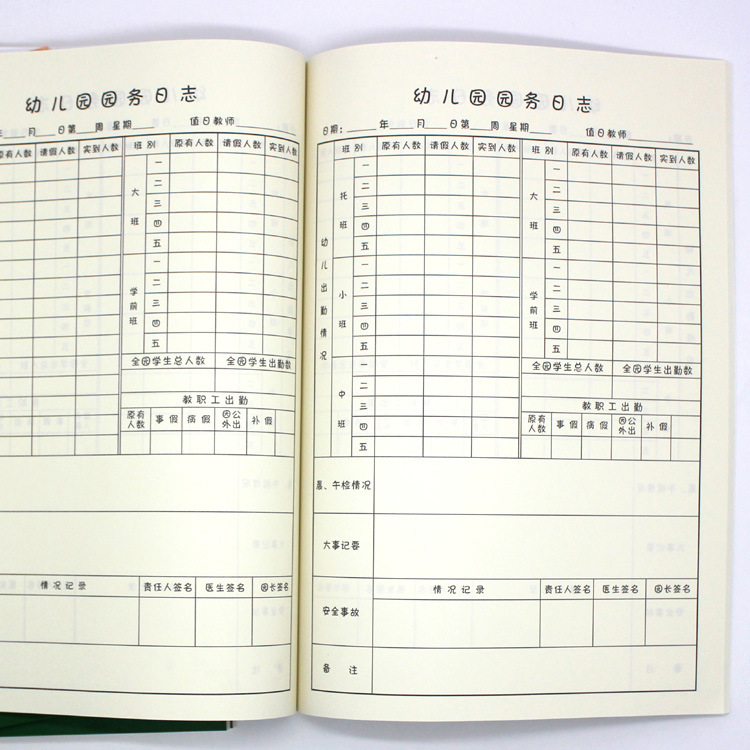 幼儿园园务日志
年 月 日第 周 星期 值日教师
原有人数 请假人数 实到人数 班 别 原有人数 请假人数 实到人数
大班 一
二
三
四
五
学前班 一
二
三
四
五
全园学生总人数 全园学生出勤数
教职工出勤
原有人数 事假 病假 因公外出 补假
情况记录 责任人签名 医生签名 园长签名
幼儿园园务日志
日期: 年 月 日第 周 星期 值日教师
班 别 原有人数 请假人数 实到人数 班 别 原有人数 请假人数 实到人数
幼儿出勤情况
托班 一 大班 一
二 二
三 三
四 四
五 五
小班 一 学前班 一
二 二
三 三
四 四
五 五
中班 一 全园学生总人数 全园学生出勤数
二
三 教职工出勤
四 原有人数 事假 病假 因公外出 补假
五
晨、午检情况
大事记要
安全事故 情况记录 责任人签名 医生签名 园长签名
备 注